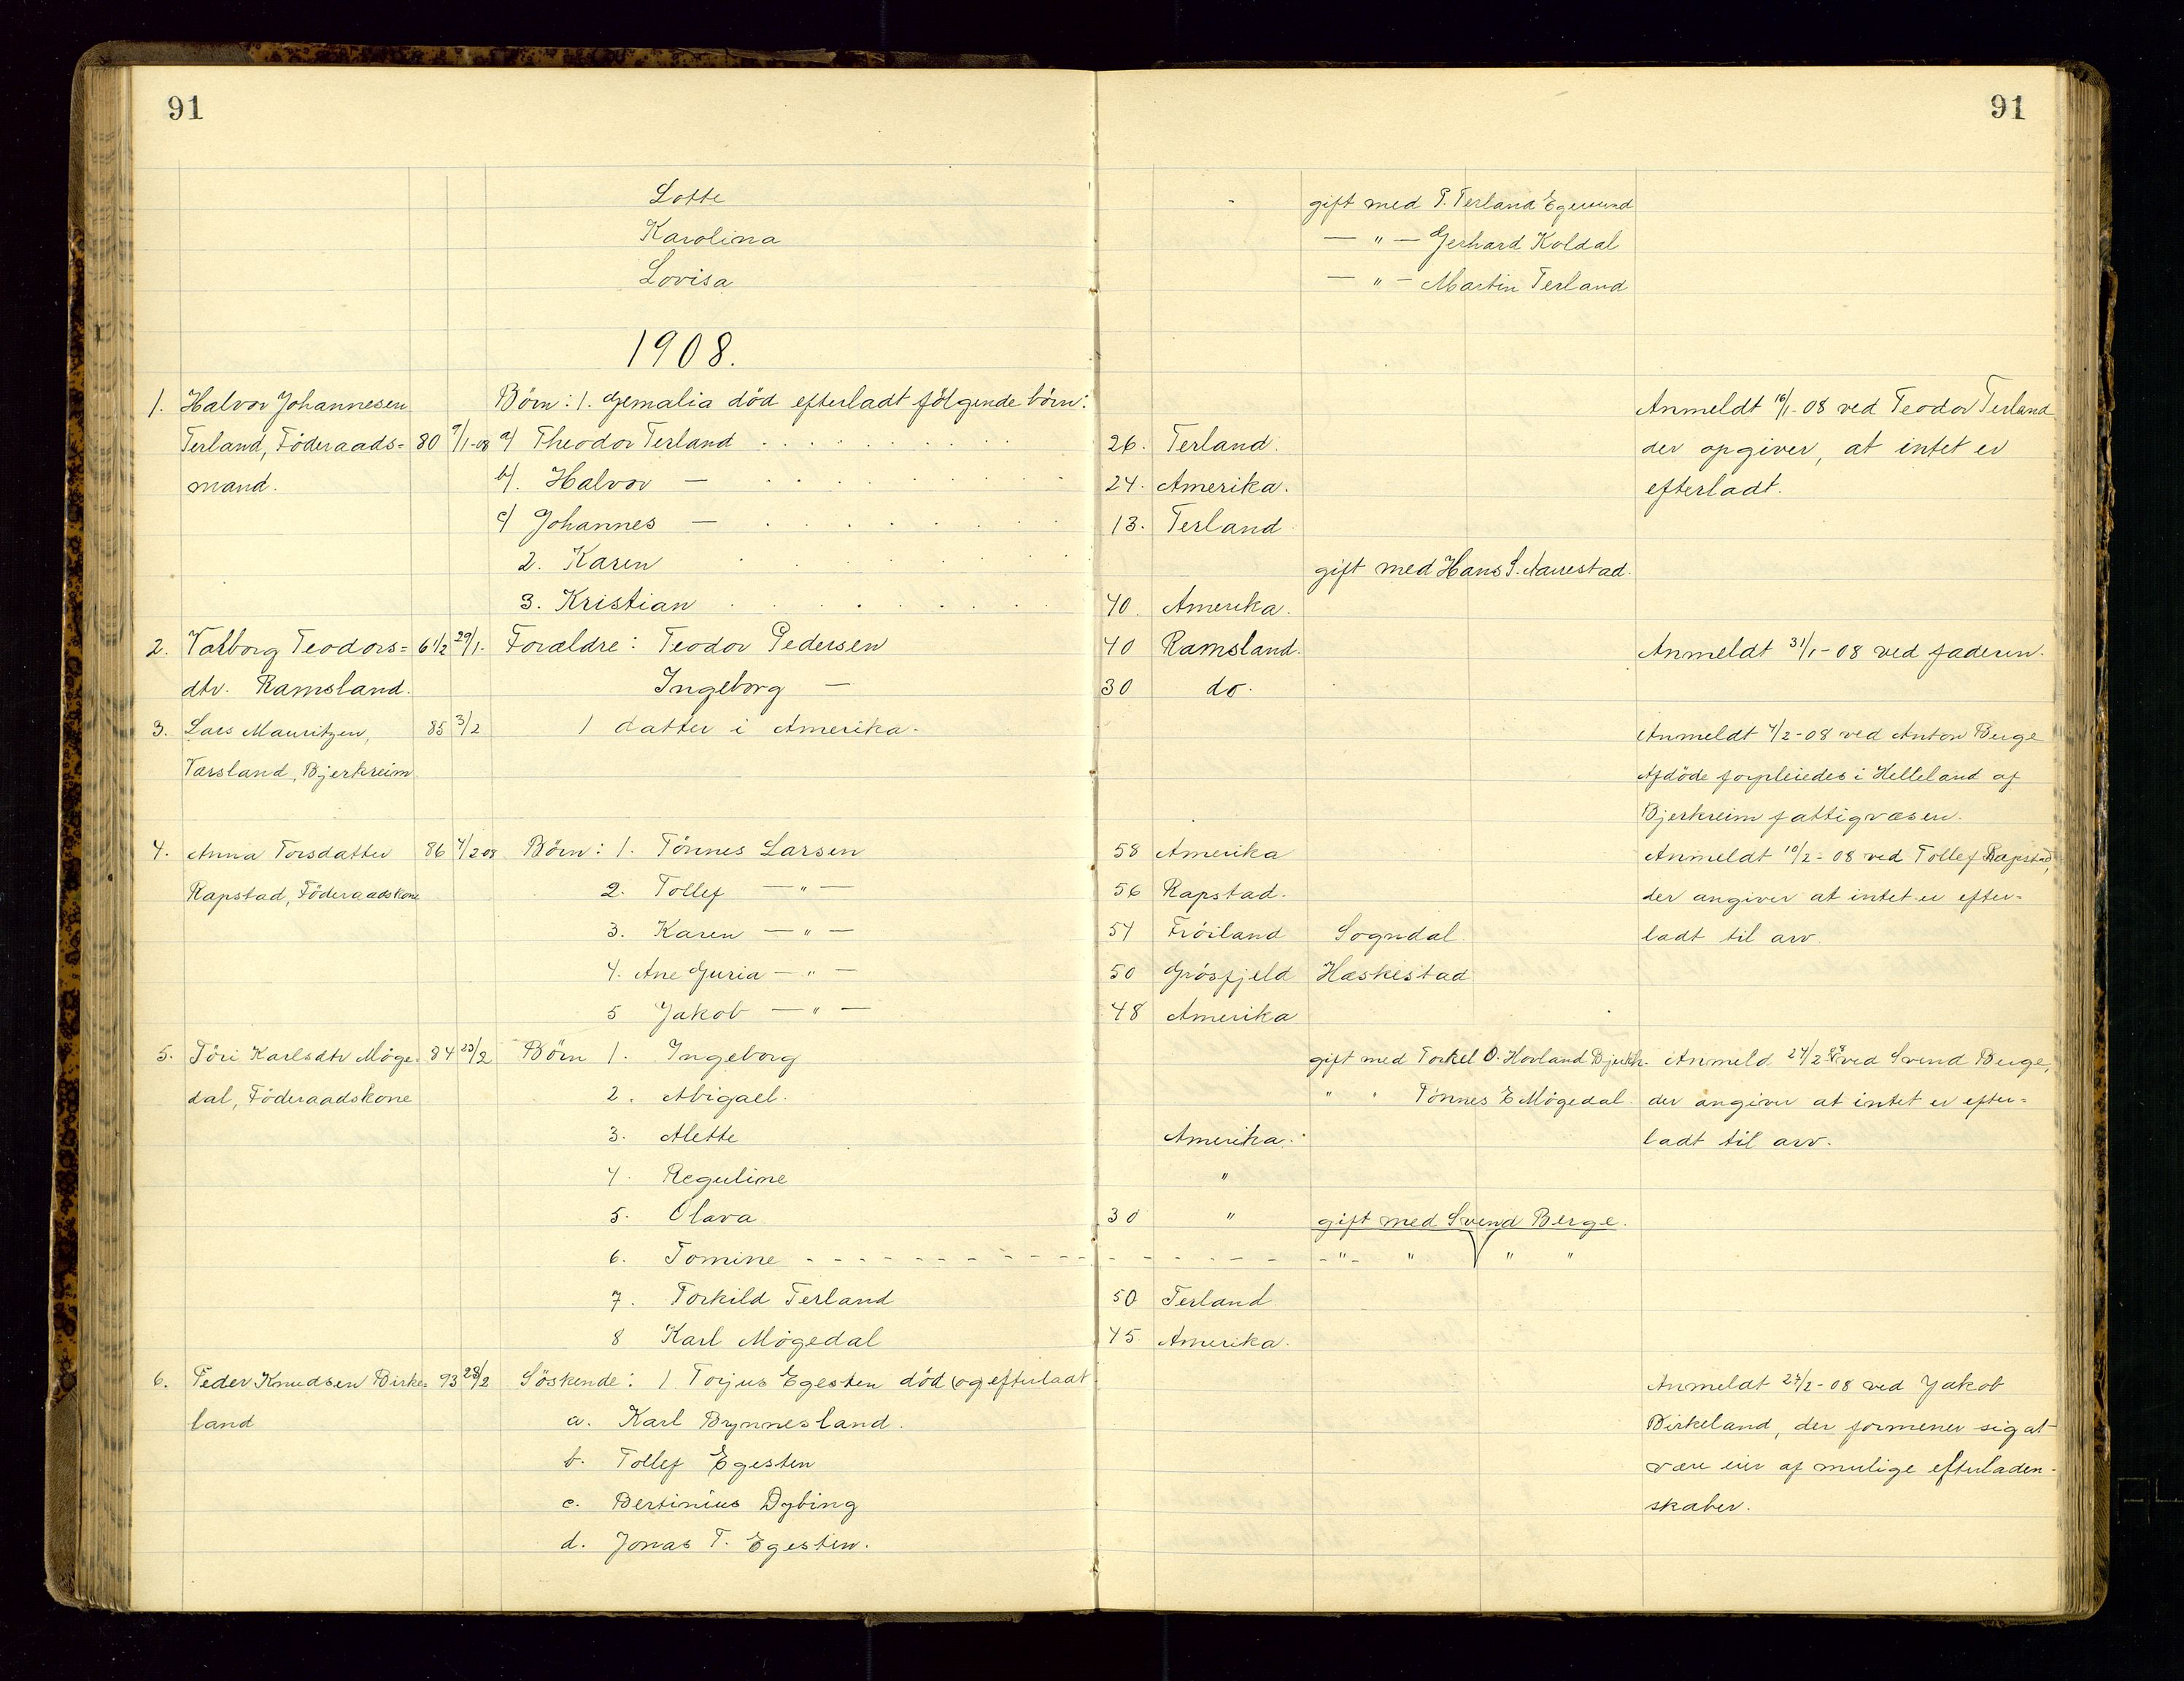 91
91
Lotte - gift med P. Terland Egersund
Karolina — " — Gerhard Koldal
Lovisa — " — Martin Terland
1908.
1. Halvor Johannesen Börn: 1. Gemalia död efterladt fölgende börn: Anmeldt 16/1-08 ved Teodor Terland
Terland, Föderaads= 80 9/1-08 a) Theodor Terland . . . . . . . 26. Terland. der opgiver, at intet er
mand. b). Halvor — . . . . . . . . 24. Amerika. efterladt.
c) Johannes — . . . . . . . . 13. Terland
2. Karen . . . . . . gift med Hans S. Aarrestad.
3. Kristian . . . . . . . . 40. Amerika.
2. Valborg Teodors= 6 1/2 29/1- Forældre: Teodor Pedersen 40 Ramsland. Anmeldt 31/1-08 ved faderen.
dtr. Ramsland. Ingeborg — 30 do.
3. Lars Mauritzen, 85 3/2 1 datter i Amerika. Anmeldt 4/2-08 ved Anton Berge
Versland, Bjerkreim Afdöde forpleiedes i Helleland af
Bjerkreim fattigvæsen.
4. Anna Torsdatter 86 4/2 08 Börn: 1. Tönnes Larsen 58 Amerika Anmeldt 10/2-08 ved Tollef Rapstad,
Rapstad, Föderaadskone 2. Tollef — " — 56 Rapstad. der angiver at intet er efter-
3. Karen — " — 54 Fröiland Sogndal. ladt til arv.
4. Ane Guria — " — 50 Grösfjeld Hæskestad
5 Jakob — " — 48 Amerika
5. Töri Karlsdtr Möge= 84 23/2 Börn 1. Ingeborg gift med Torkel O. Hovland Bjerkr. Anmeld. 24/2 08 ved Svend Berge,
dal, Föderaadskone 2. Abigael. " " Tönnes E Mögedal. der angiver at intet er efter=
3. Alette Amerika. ladt til arv.
4. Reguline "
5. Olava 30 " gift med Svend Berge.
6. Tomine - - - - - - - - - - - - - - - - - " - " " "
7. Torkild Terland 50 Terland.
8 Karl Mögedal 45 Amerika.
6. Peder Knudsen Birke= 93 23/2 Söskende: 1. Torjus Egesten död (og) efterladt Anmeldt 27/2-08 ved Jakob
land a. Karl Bynnesland. Birkeland, der formener sig at
b. Tollef Egesten være eier af mulige efterladen-
c. Bertinius Dybing skaber.
d. Jonas T. Egesten.